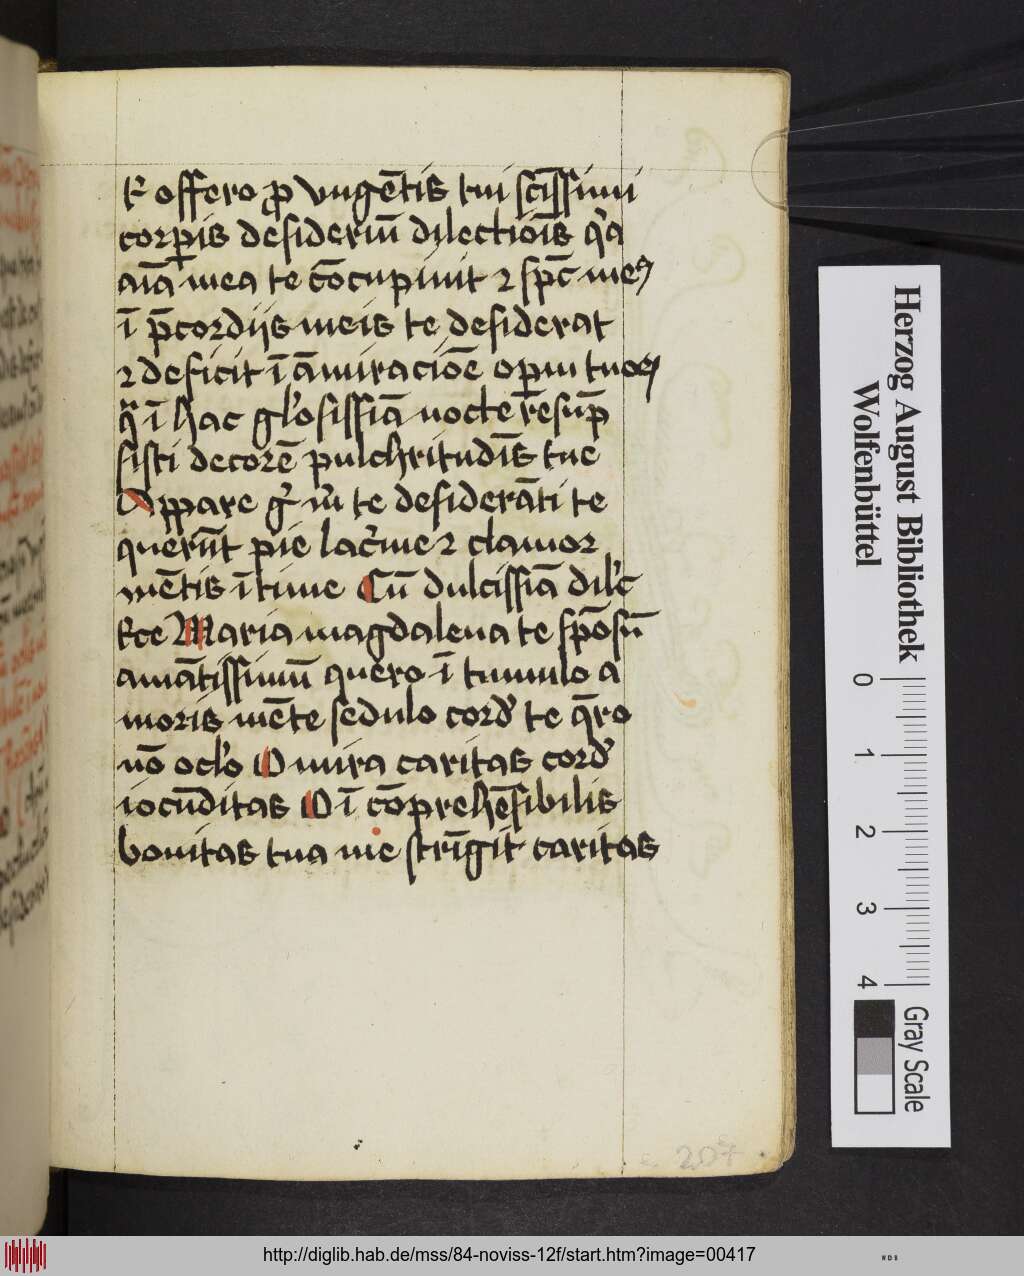 R offero ꝓ vngētis tui sc̄issimi
corꝑis desideriū dilectiōis q̓a
aīa mea te cōcupiuit ⁊ sp̄c meꝰ
ī p̄cordijs meis te desiderat
⁊ deficit ī āmiraciōe oꝑm tuoꝝ
q̄ ī hac gl̓osissīa nocte resūp
sisti decorē pulchritudīs tue
Appare g̓ m̓ te desiderāti te
querūt pie lac̓me ⁊ clamor
mētis ītime Cū dulcissīa dil̓c
Rce Maria magdalena te spōsū
amātissimū quero ī tumulo a
moris mēte sedulo cord̓ te q̄ro
nō ocl̓o O mira caritas cord̓
iocūditas O ī cōprehēsibilis
bonitas tua me strīgit caritas
207
Herzog August Bibliothek
Wolfenbüttel
0 1 2 3 4
Gray Scale
http://diglib.hab.de/mss/84-noviss-12f/start.htm?image=00417